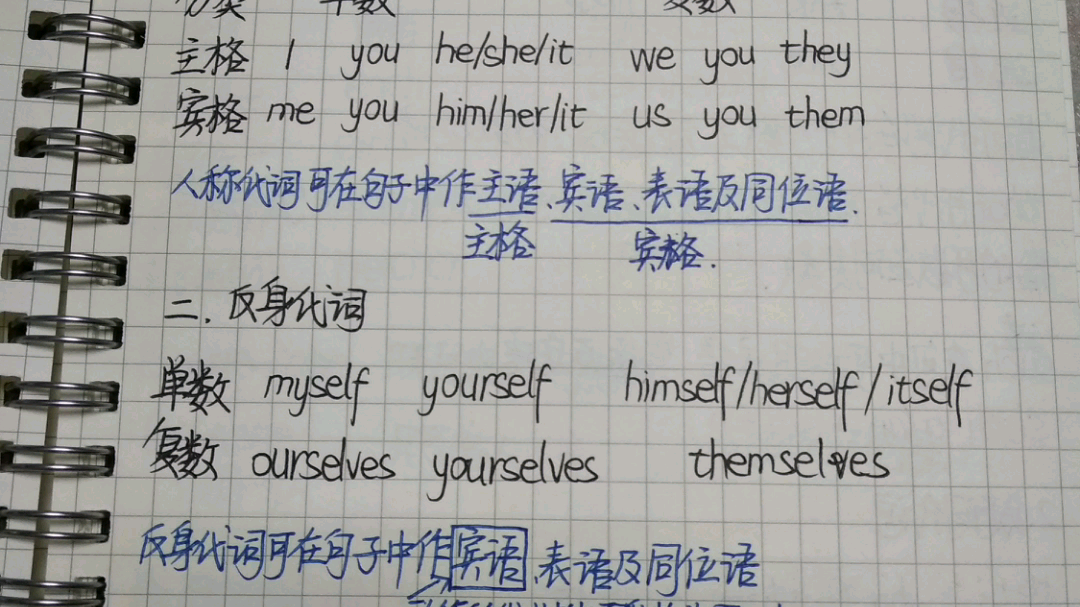 分类 单数 复数
主格 I you he/she/it we you they
宾格 me you him/her/it us you them
人称代词可在句子中作主语、宾语、表语及同位语.
主格 宾格.
二. 反身代词
单数 myself yourself himself/herself/itself
复数 ourselves yourselves themselves
反身代词可在句子中作宾语、表语及同位语